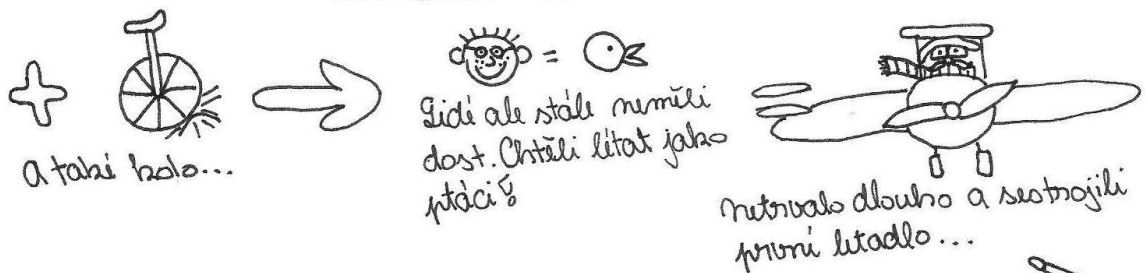 a také kolo...
Lidé ale stále neměli
dost. Chtěli létat jako
ptáci!
netrvalo dlouho a sestrojili
první letadlo...